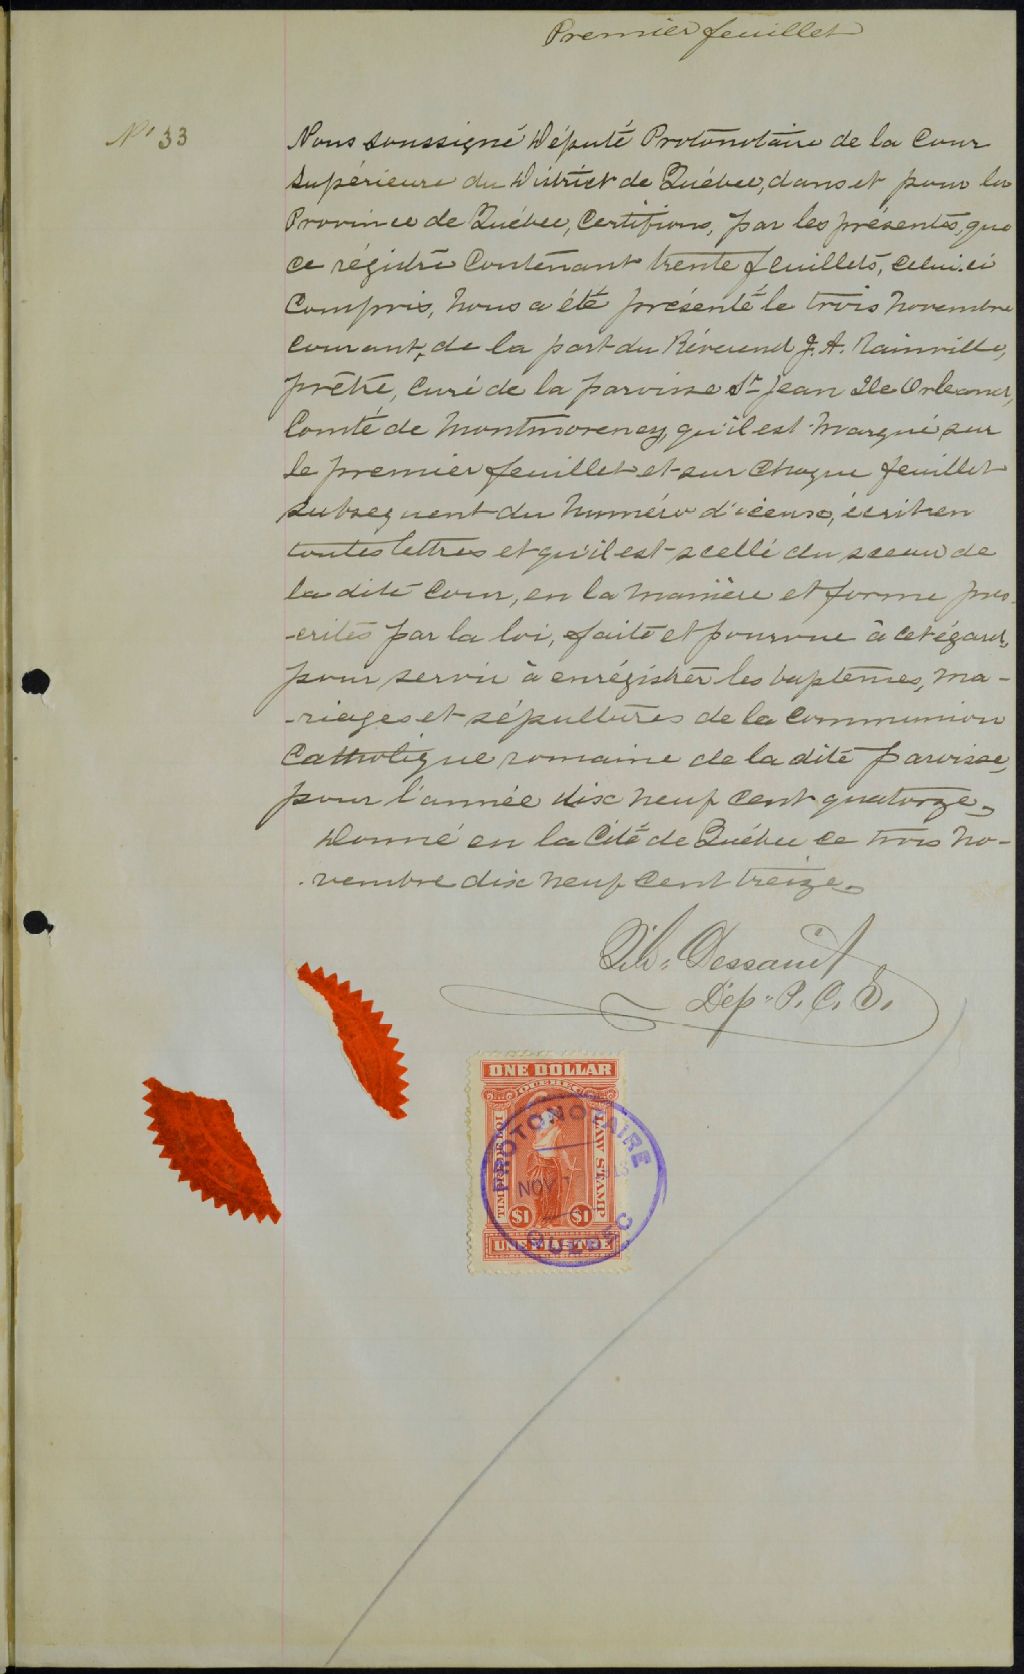 Premier feuillet
No 33
Nous soussigné Député Protonotaire de la Cour
Supérieure du District de Québec, dans et pour la
Province de Québec, Certifions, par les présentes, que
ce régistre Contenant trente feuillets, celui-ci
Compris, nous a été présenté le trois Novembre
Courant, de la part du Révérend J. A. Rainville,
prêtre, Curé de la paroisse St Jean Ile Orleans,
Comté de Montmorency, qu'il est Marqué sur
le premier feuillet et sur Chaque feuillet
subsequent du Numéro d'icense, écrit en
toutes lettres et qu'il est scellé du sceau de
la dite Cour, en la Manière et forme pres-
-crites par la loi, faite et pourvue à cet égard,
pour servir à enrégistrer les baptêmes, ma-
-riages et sépultures de la Communion
Catholique romaine de la dite paroisse,
pour l'année dix neuf Cent quatorze.
Donné en la Cité de Québec ce trois No-
-vembre dix neuf Cent treize.
Dessault
Dép. P. C. S.
ONE DOLLAR
QUEBEC
TIMBRE DE LOI
LAW STAMP
$1 $1
UNE PIASTRE
PROTONOTAIRE
NOV 13
QUEBEC